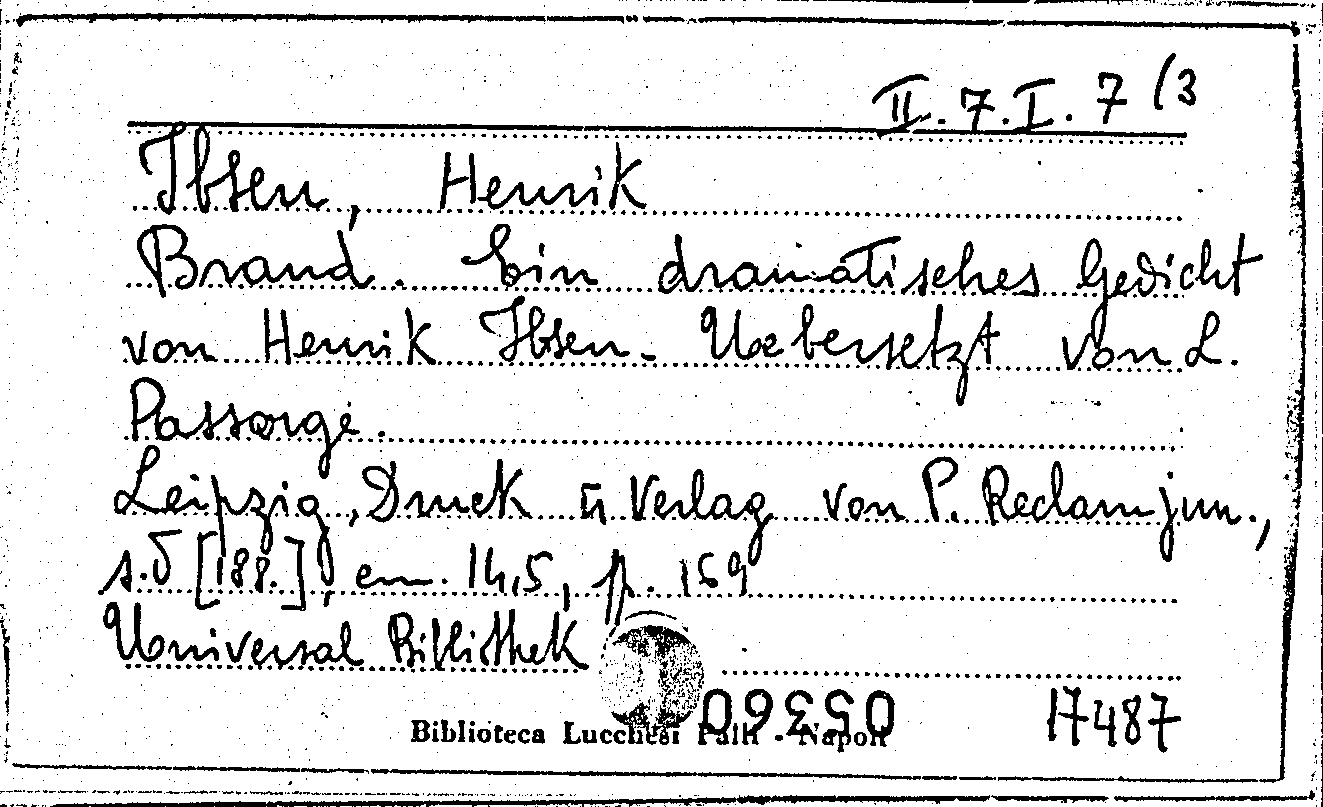 II.7.I.7(3
Ibsen, Henrik
Brand. Ein dramatisches Gedicht
von Henrik Ibsen. Uebersetzt von L.
Passarge.
Leipzig, Druck ū Verlag von P. Reclam jun.,
s.d [188.], cm. 14,5, p. 159
Universal Bibliothek
Biblioteca Lucchesi Palli - Napoli
17487